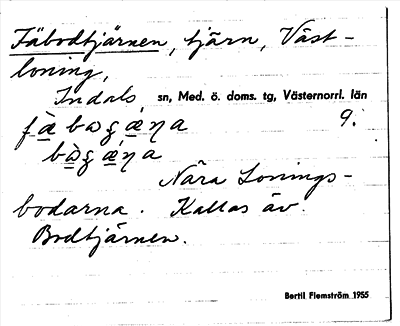 Fäbodtjärnen, tjärn, Väst-
loning,
Indals sn, Med. ö. doms. tg, Västernorrl. län
9.
Nära Lonings-
bodarna. Kallas äv.
Bodtjärnen.
Bertil Flemström 1955